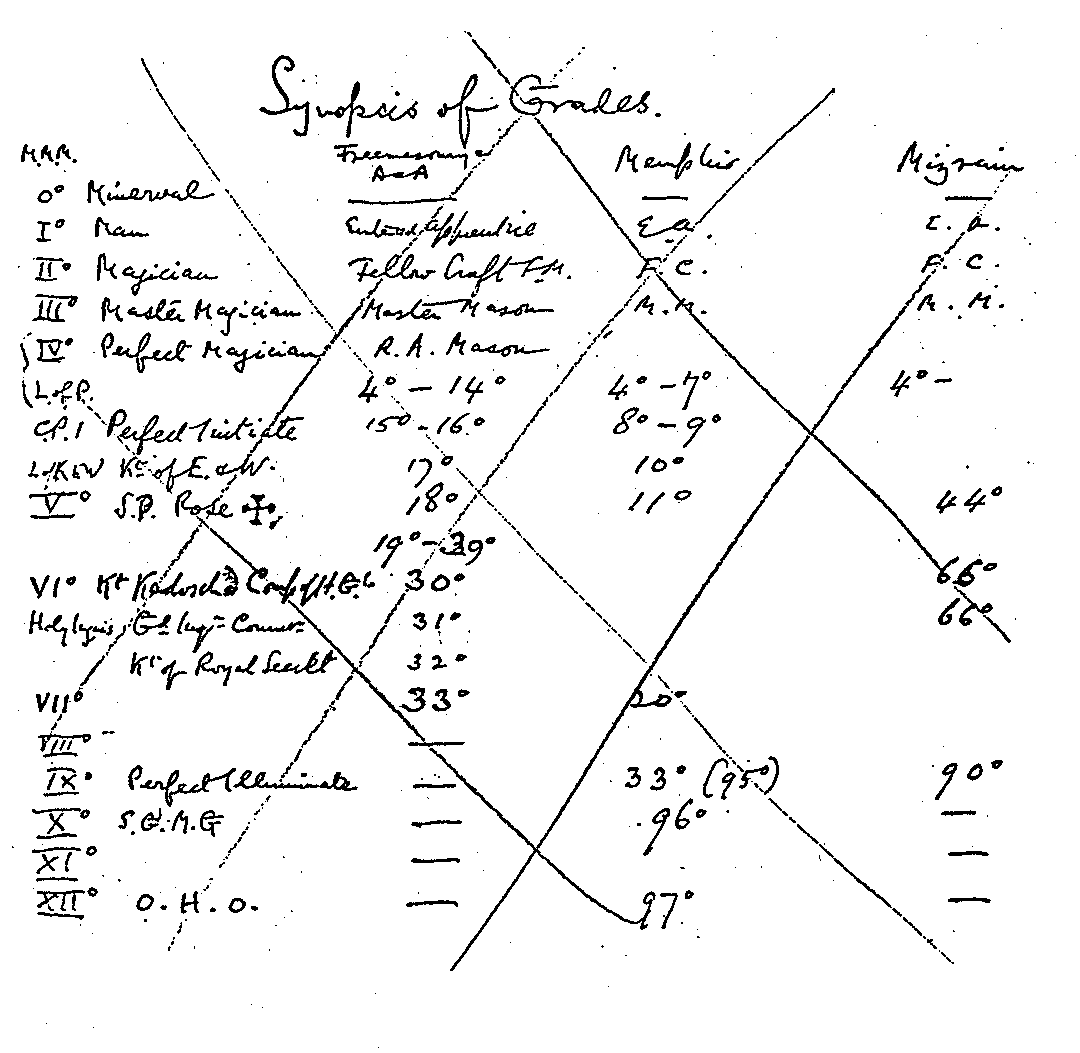 Synopsis of Grades.
M.M.M. Freemasonry Memphis Mizraim
A & A
0° Minerval — — —
I° Man Entered Apprentice E. A. E. A.
II° Magician Fellow Craft F. C. F. C.
III° Master Magician Master Mason M. M. M. M.
IV° Perfect Magician R. A. Mason
L. of P. 4° – 14° 4° – 7° 4° –
C.P.I Perfect Initiate 15° – 16° 8° – 9°
L of K E W Kt of E. & W. 17° 10°
V° S.P. Rose ✠ 18° 11° 44°
19° – 29°
VI° Kt Kadosch Comp of H.G. 30° 65°
Gd Insp Comm 31° 66°
Kt of Royal Secret 32°
VII° 33° 20°
VIII° —
IX° Perfect Illuminate — 33° (95°) 90°
X° S. G. M. G — 96° —
XI° — —
XII° O. H. O. — 97° —